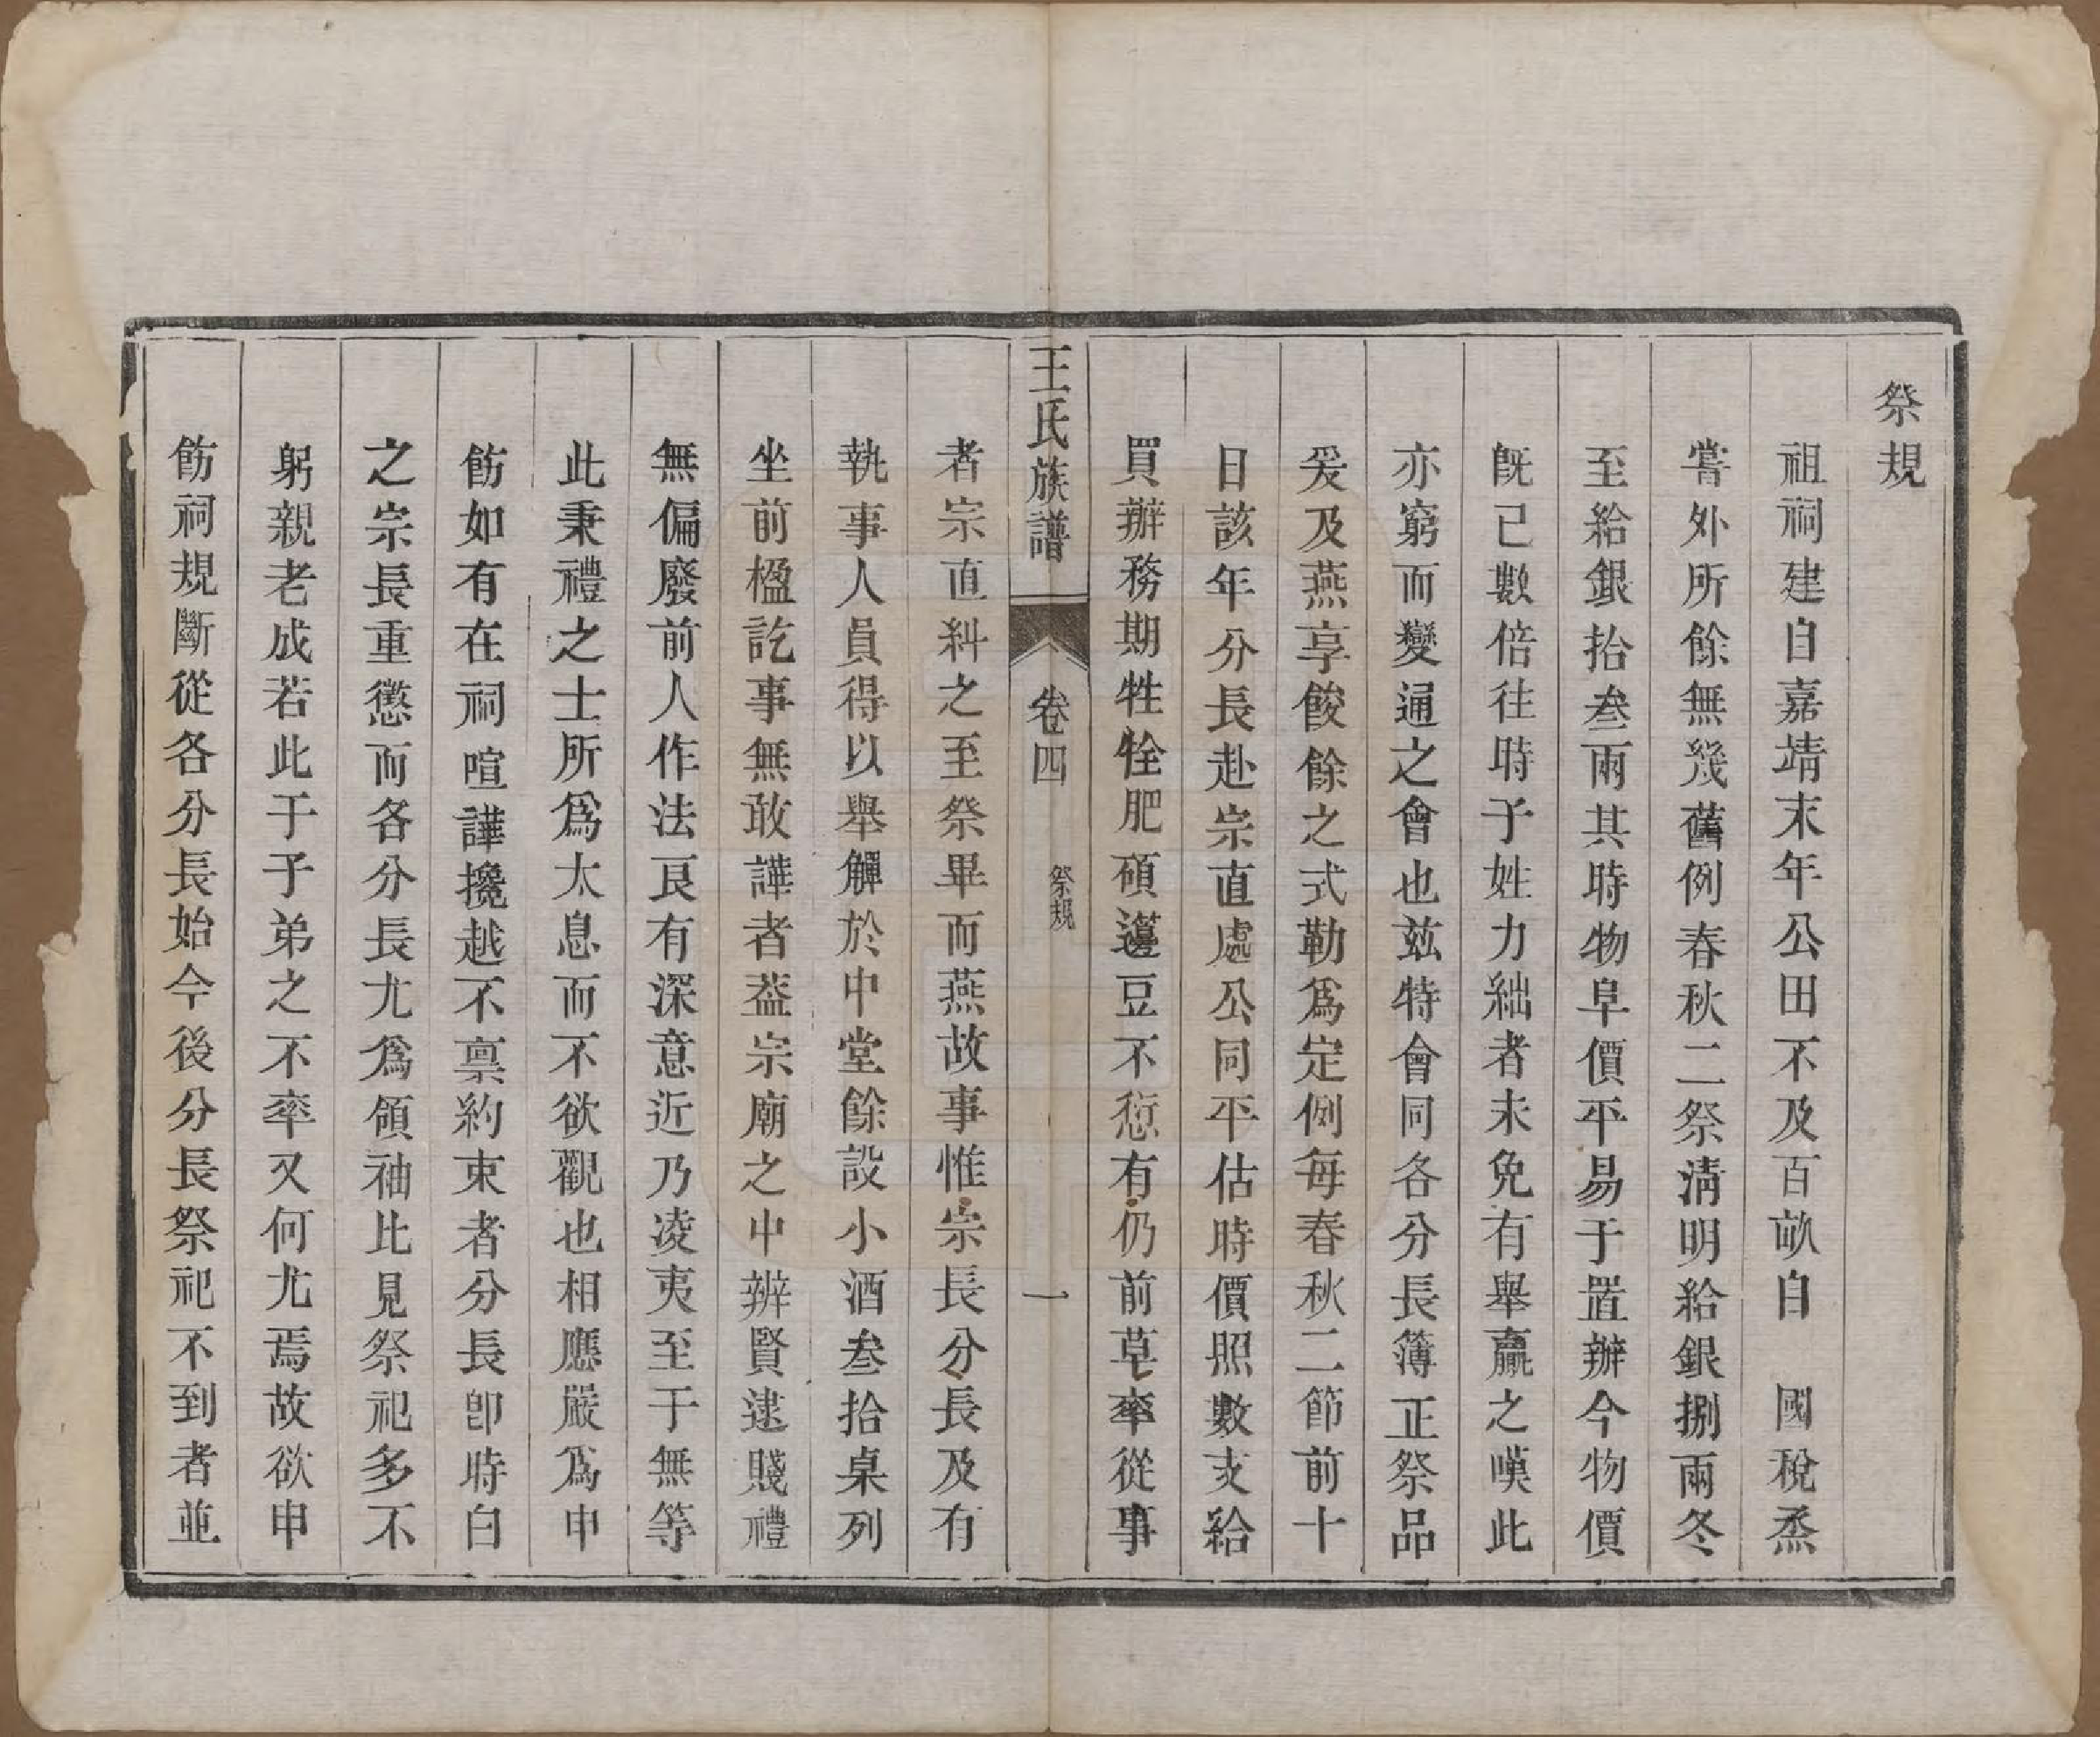 祭規
祖祠建自嘉靖末年公田不及百畝自　國稅烝
嘗外所餘無幾舊例春秋二祭清明給銀捌兩冬
至給銀拾叁兩其時物阜價平易于置辦今物價
旣已數倍往時予姓力絀者未免有舉贏之嘆此
亦窮而變通之會也茲特會同各分長簿正祭品
爰及燕享餕餘之式勒爲定例每春秋二節前十
日該年分長赴宗直處公同平估時價照數支給
買辦務期牲牷肥碩籩豆不愆有仍前草率從事
王氏族譜　卷四　祭規　一
者宗直糾之至祭畢而燕故事惟宗長分長及有
執事人員得以舉觶於中堂餘設小酒叁拾桌列
坐前楹訖事無敢譁者葢宗廟之中辨賢逮賤禮
無偏廢前人作法良有深意近乃凌夷至于無等
此秉禮之士所爲太息而不欲觀也相應嚴爲申
飭如有在祠喧譁攙越不禀約束者分長卽時白
之宗長重懲而各分長尤爲領袖比見祭祀多不
躬親老成若此于予弟之不率又何尤焉故欲申
飭祠規斷從各分長始今後分長祭祀不到者並